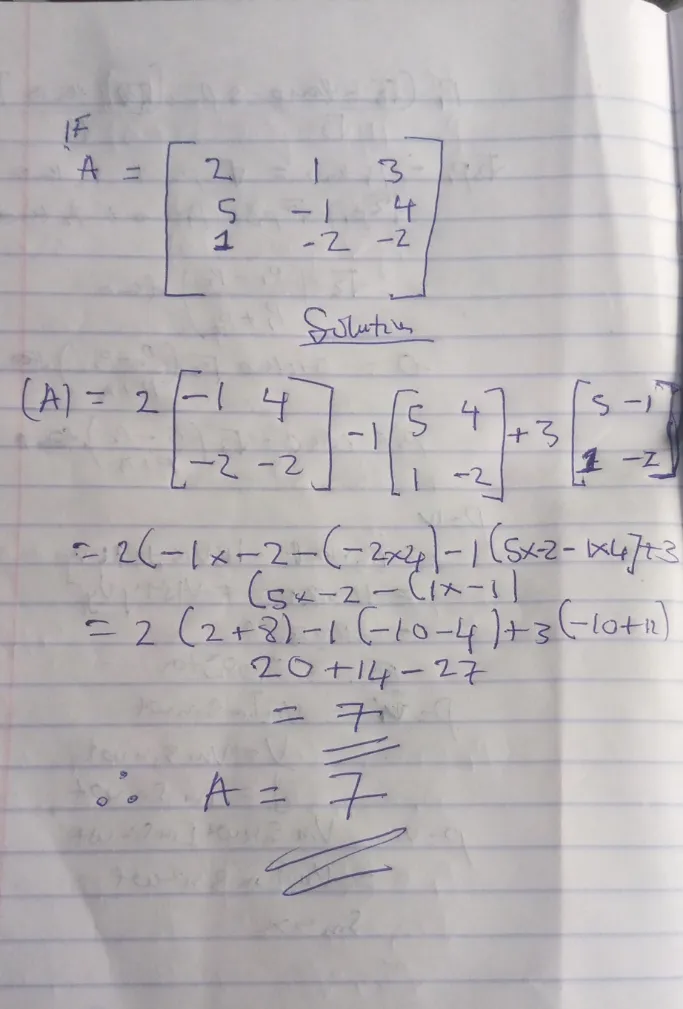 IF
A = [ 2 1 3
5 -1 4
1 -2 -2 ]
Solution
(A) = 2 [ -1 4 -2 -2 ] -1 [ 5 4 1 -2 ] +3 [ 5 -1 1 -2 ]
= 2(-1x-2-(-2x4)-1(5x-2-1x4)+3
(5x-2-(1x-1)
= 2 (2+8)-1(-10-4)+3(-10+1)
20+14-27
= 7
∴ A = 7